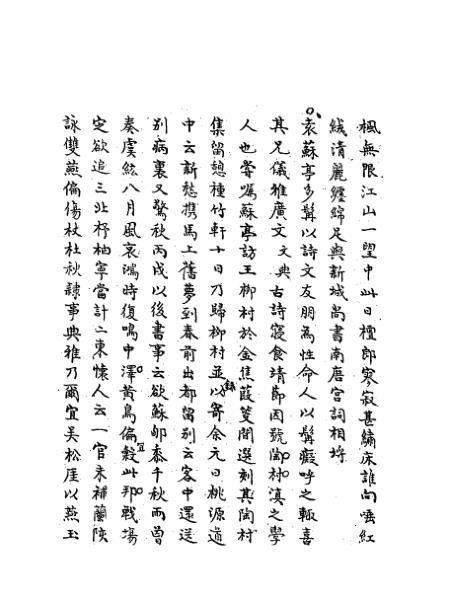 楓無限江山一望中此日檀郎寥寂甚繡床誰向唾紅
絨清麗纏綿足與新城尚書南唐宮詞相埒
袁蘇亭多髯以詩文友朋為性命人以髯癡呼之輒喜
其兄儀雅廣文文典古詩寢食靖節因號陶村滇之學
人也嘗囑蘇亭訪王柳村於金焦葭葦間選刻其陶村
集留憩種竹軒十日乃歸柳村並以錄寄余元日桃源道
中云新愁攜馬上舊夢到春前出都留別云客中還送
別病裏又驚秋丙戌以後書事云欲穌郇黍千秋雨曾
奏虞絃八月風哀鴻時復鳴中澤黃鳥偏宜穀此邦戰場
定欲追三北杼柚寧當計二東懷人云一官未補蘭陵
詠雙燕偏傷杕杜秋隸事典雅乃爾宜吳松厓以燕玉